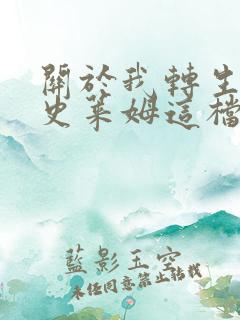 關於我轉生
史萊姆這檔
藍影玉空
未經同意禁止轉載